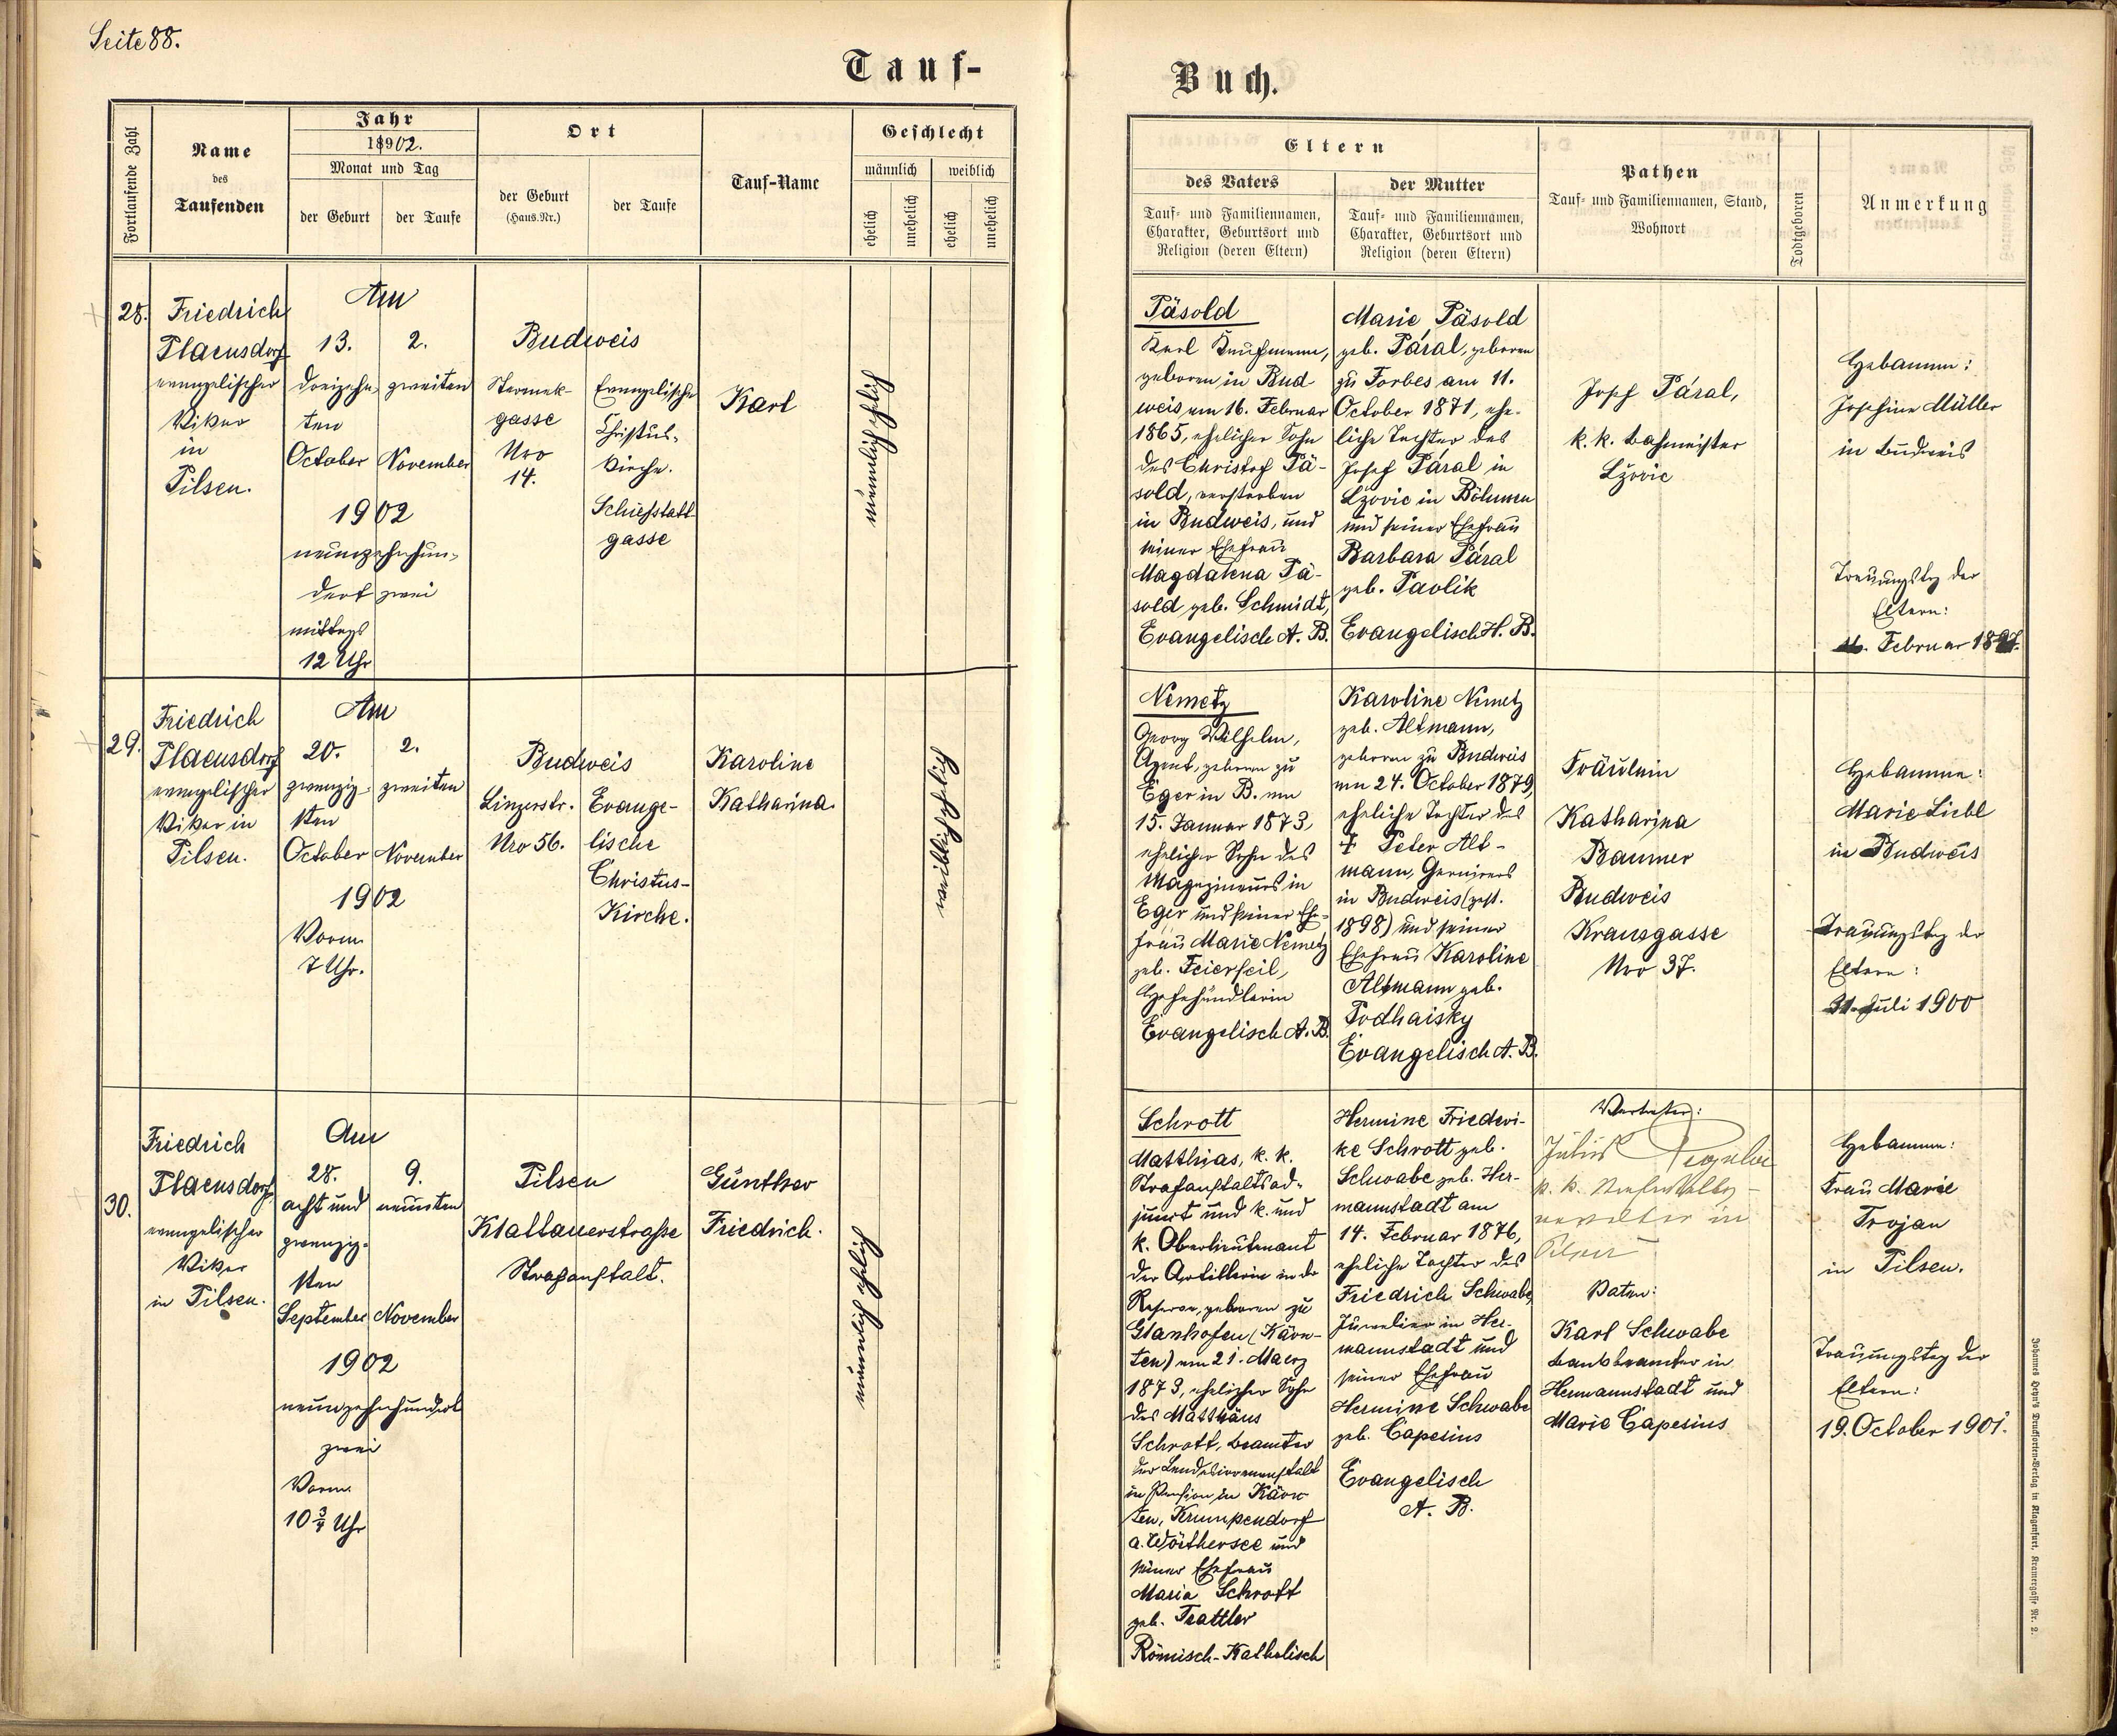 Seite 88.
Tauf-
Buch.
Fortlaufende Zahl
Name
des
Taufenden
Jahr
1902.
Monat und Tag
der Geburt
der Taufe
Ort
der Geburt
(Haus-Nr.)
der Taufe
Tauf-Name
Geschlecht
männlich
weiblich
ehelich
unehelich
ehelich
unehelich
Eltern
des Vaters
Tauf- und Familiennamen,
Charakter, Geburtsort und
Religion (deren Eltern)
der Mutter
Tauf- und Familiennamen,
Charakter, Geburtsort und
Religion (deren Eltern)
Pathen
Tauf- und Familiennamen, Stand,
Wohnort
Todtgeboren
Anmerkung
28.
Friedrich
Plaensdorf
evangelischer
Vikar
in
Pilsen.
Am
13.
dreizehn-
ten
October
2.
zweiten
November
1902
neunzehnhun-
dert zwei
mittags
12 Uhr
Budweis
gasse
Nro
14.
Evangelische
Christus-
kirche.
Schießstatt
gasse
Karl
männlich ehelich
Päsold
Karl Kaufmann,
geboren in Bud
weis, am 16. Februar
1865, ehelicher Sohn
des Christof Pä-
sold, verstorben
in Budweis, und
seiner Ehefrau
Magdalena Pä-
sold geb. Schmidt,
Evangelisch A. B.
Marie Päsold
geb. Páral, geboren
zu Forbes am 11.
October 1871, ehe-
liche Tochter des
Josef Páral in
Lžovic in Böhmen
und seiner Ehefrau
Barbara Páral
geb. Pavlik
Evangelisch H. B.
Josef Páral,
k. k. Bahnmeister
Lžovic
Hebamme:
Josefine Müller
in Budweis
Trauungstag der
Eltern:
Februar 1897.
29.
Friedrich
Plaensdorf
evangelischer
Vikar in
Pilsen.
Am
20.
zwanzig-
sten
October
2.
zweiten
November
1902
Vorm.
7 Uhr.
Budweis
Linzerstr.
Nro 56.
Evange-
lische
Christus-
Kirche.
Karoline
Katharina.
weiblich ehelich
Nemetz
Georg Wilhelm,
Agent, geboren zu
Eger in B. am
15. Januar 1873,
ehelicher Sohn des
Magazineurs in
Eger und seiner Ehe-
frau Marie Nemetz
geb. Feierfeil,
Hefehändlerin
Evangelisch A. B.
Karoline Nemetz
geb. Altmann,
geboren zu Budweis
am 24. October 1879,
eheliche Tochter des
† Peter Alt-
mann,
in Budweis (gest.
1898) und seiner
Ehefrau Karoline
Altmann geb.
Podhaisky
Evangelisch A. B.
Fräulein
Katharina
Baumer
Budweis
Kranzgasse
Nro 37.
Hebamme:
Marie Liebl
in Budweis
Trauungstag der
Eltern:
31. Juli 1900
30.
Friedrich
Plaensdorf
evangelischer
Vikar
in Pilsen.
Am
28.
acht und
zwanzig-
sten
September
9.
neunten
November
1902
neunzehnhundert
zwei
Vorm.
10 3/4 Uhr
Pilsen
Klattauerstraße
Strafanstalt.
Günther
Friedrich.
männlich ehelich
Schrott
Matthias, k. k.
Strafanstaltsad-
junct und k. und
k. Oberlieutenant
der Artillerie in der
Reserve, geboren zu
Glanhofen (Kärn-
ten) am 21. Maerz
1873, ehelicher Sohn
des Matthäus
Schrott, Beamter
der Landesirrenanstalt
in Pension in Kärn
ten, Krumpendorf
a. Wörthersee und
seiner Ehefrau
Maria Schrott
geb. Trattler
Römisch-Katholisch
Hermine Friederi-
ke Schrott geb.
Schwabe geb. Her-
mannstadt am
14. Februar 1876,
eheliche Tochter des
Friedrich Schwabe,
Juwelier in Her-
mannstadt und
seiner Ehefrau
Hermine Schwabe
geb. Capesius
Evangelisch
A. B.
Vertreter:
Julius
k. k.
in
Pilsen
Paten:
Karl Schwabe
Bankbeamter in
Hermannstadt und
Marie Capesius
Hebamme:
Frau Marie
Trojan
in Pilsen.
Trauungstag der
Eltern:
19. October 1901.
Johannes Heyn's Drucksorten-Verlag in Klagenfurt, Kramergasse Nr. 2.